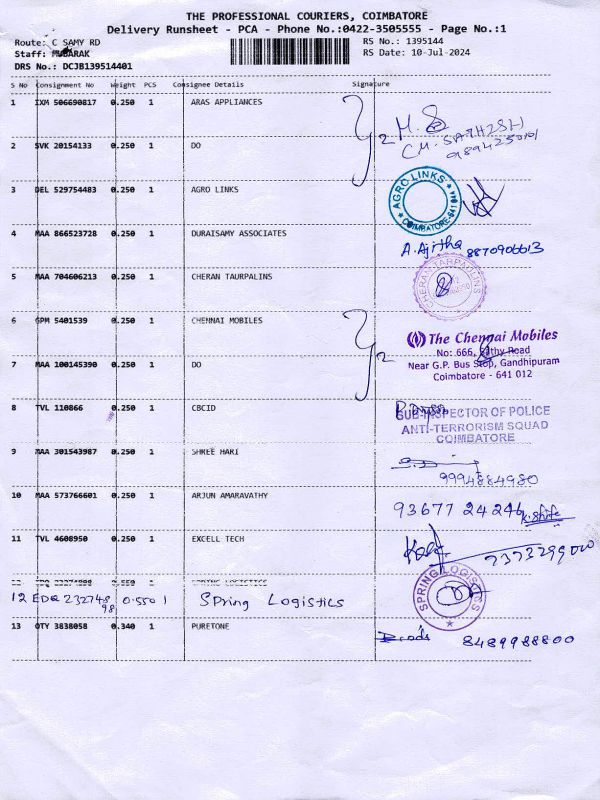 THE PROFESSIONAL COURIERS, COIMBATORE
Delivery Runsheet - PCA - Phone No.:0422-3505555 - Page No.:1
Route: C SAMY RD
Staff: MUBARAK
DRS No.: DCJB139514401
RS No.: 1395144
RS Date: 10-Jul-2024
S No Consignment No Weight PCS Consignee Details Signature
1 IXM 506690817 0.250 1 ARAS APPLIANCES
C.M. SATHISH
2 SVK 20154133 0.250 1 DO
3 DEL 529754483 0.250 1 AGRO LINKS
AGRO LINKS
4 MAA 866523728 0.250 1 DURAISAMY ASSOCIATES
A. Ajitha 8870906613
5 MAA 704606213 0.250 1 CHERAN TAURPALINS
CHERAN TARPAULINS
6 GPM 5401539 0.250 1 CHENNAI MOBILES
The Chennai Mobiles
No: 666, Sathy Road
Near G.P. Bus Stop, Gandhipuram
Coimbatore - 641 012
7 MAA 100145390 0.250 1 DO
8 TVL 110866 0.250 1 CBCID
SUB-INSPECTOR OF POLICE
ANTI-TERRORISM SQUAD
COIMBATORE
9 MAA 301543987 0.250 1 SHREE HARI
9994884980
10 MAA 573766601 0.250 1 ARJUN AMARAVATHY
93677 24246
11 TVL 4608950 0.250 1 EXCELL TECH
7373299000
12 EDQ 23274898 0.550 1 SPring Logistics
SPRING LOGISTICS
13 OTY 3838058 0.340 1 PURETONE
8489988800